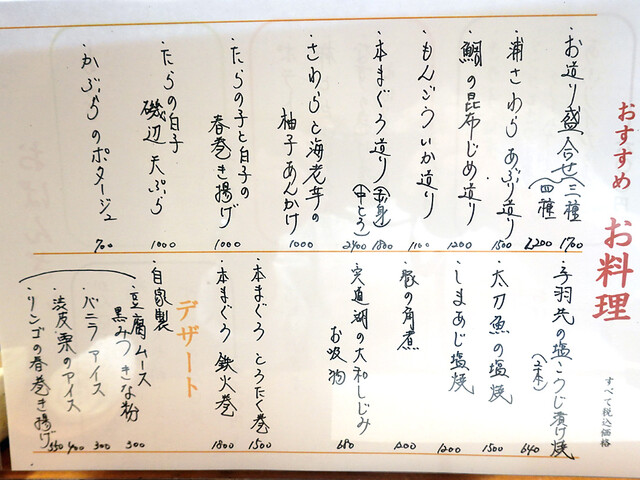 おすすめ お料理
すべて税込価格
・お造り盛合せ(三種 1700
(四種 2,200
・浦さわらあぶり造り 1500
・鯛の昆布じめ造り 1200
・もんごういか造り 1100
・本まぐろ造り(赤身) 1800
(中とろ) 2400
・さわらと海老芋の
柚子あんかけ 1000
・たらの子と白子の
春巻き揚げ 1000
・たらの白子
磯辺天ぷら 1000
・かぶらのポタージュ 700
・手羽先の塩こうじ漬け焼
(2本) 640
・太刀魚の塩焼 1500
・しまあじ塩焼 1200
・豚の角煮 1200
・宍道湖の大和しじみ
お吸物 680
・本まぐろ とろたく巻 1500
・本まぐろ 鉄火巻 1800
デザート
・自家製
・豆腐ムース
黒みつきな粉 300
・バニラアイス 300
・渋皮栗のアイス 400
・リンゴの春巻き揚げ 550